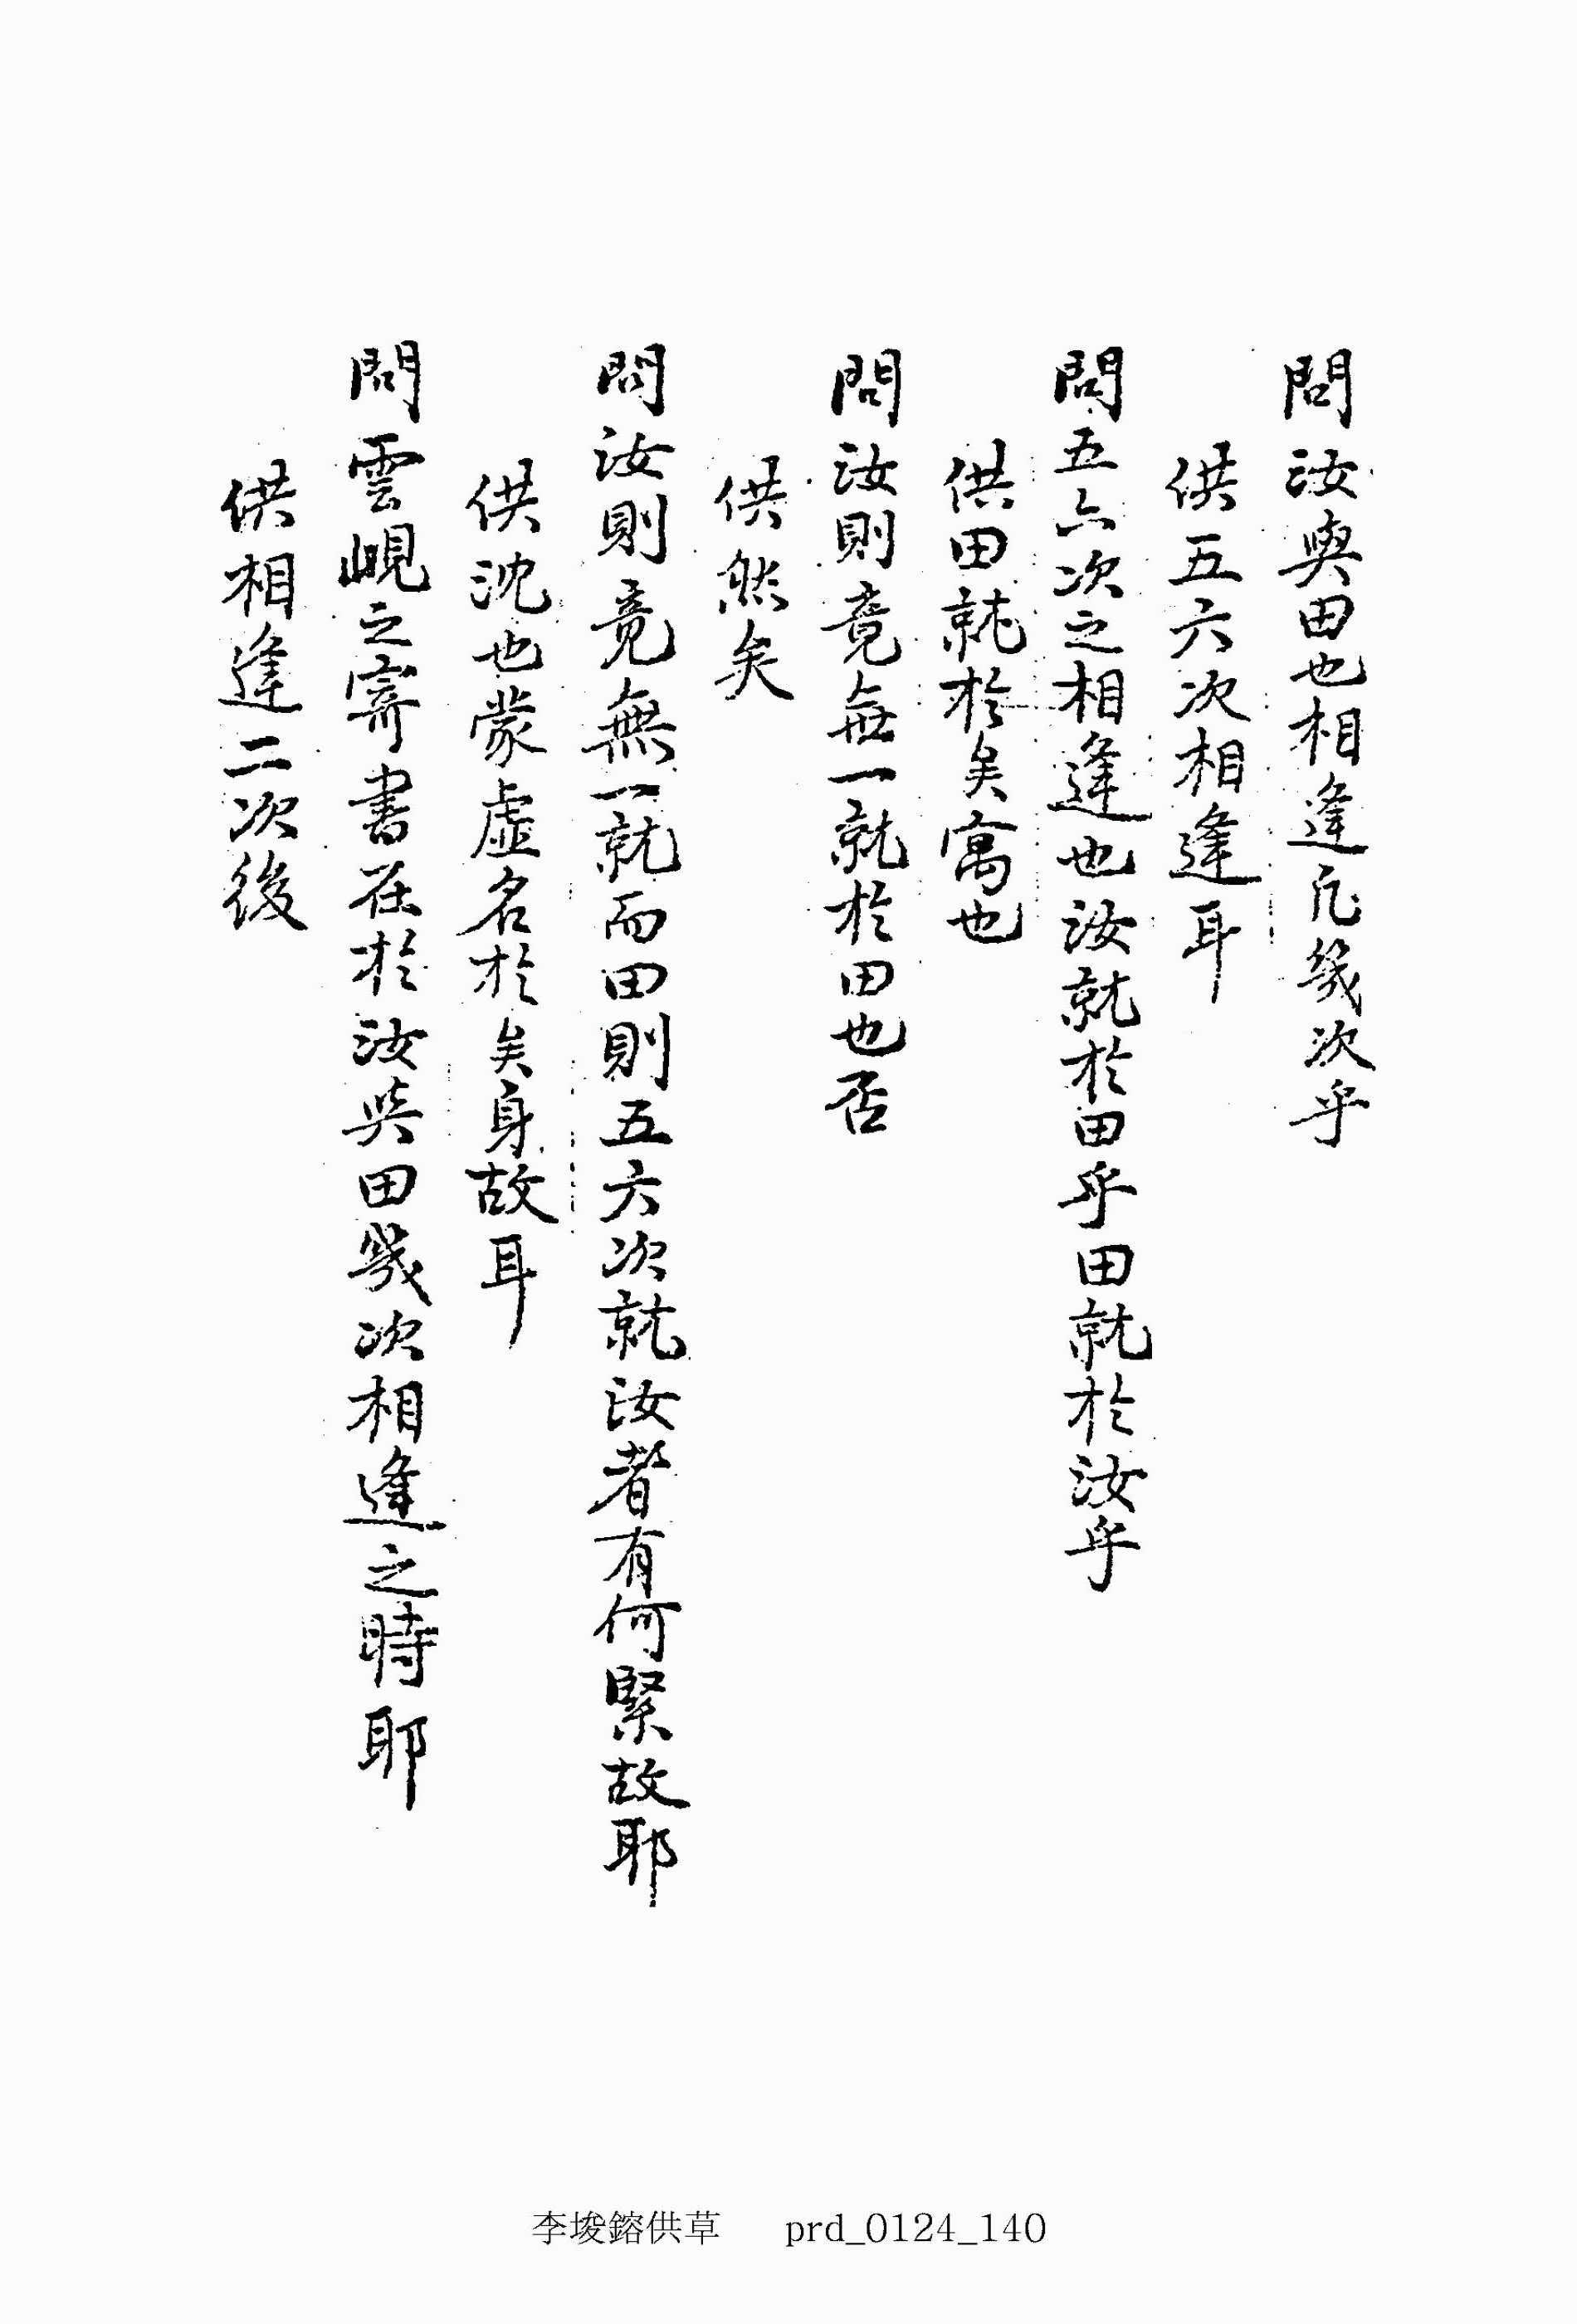 問汝與田也相逢凡幾次乎
供五六次相逢耳
問五六次之相逢也汝就於田乎田就於汝乎
供田就於矣寓也
問汝則竟無一就於田也否
供然矣
問汝則竟無一就而田則五六次就汝者有何緊故耶
供沈也蒙虛名於矣身故耳
問雲峴之寄書在於汝與田幾次相逢之時耶
供相逢二次後
李埈鎔供草 prd_0124_140